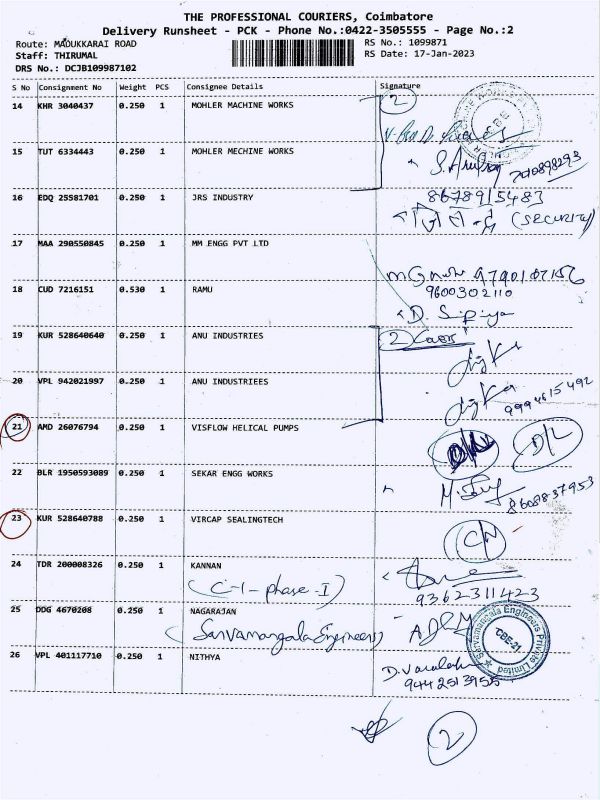 THE PROFESSIONAL COURIERS, Coimbatore
Delivery Runsheet - PCK - Phone No.:0422-3505555 - Page No.:2
Route: MADUKKARAI ROAD
RS No.: 1099871
Staff: THIRUMAL
RS Date: 17-Jan-2023
DRS No.: DCJB109987102
S No Consignment No Weight PCS Consignee Details Signature
14 KHR 3040437 0.250 1 MOHLER MACHINE WORKS 2
15 TUT 6334443 0.250 1 MOHLER MECHINE WORKS
16 EDQ 25581701 0.250 1 JRS INDUSTRY 8678915483
(SECURITY)
17 MAA 290550845 0.250 1 MM ENGG PVT LTD
18 CUD 7216151 0.530 1 RAMU 9600302110
19 KUR 528640640 0.250 1 ANU INDUSTRIES 2
20 VPL 942021997 0.250 1 ANU INDUSTRIEES 9994615492
21 AMD 26076794 0.250 1 VISFLOW HELICAL PUMPS D/L D/L
22 BLR 1950593089 0.250 1 SEKAR ENGG WORKS 8608837953
23 KUR 528640788 0.250 1 VIRCAP SEALINGTECH C/N
24 TDR 200008326 0.250 1 KANNAN
(C-1-phase-I) 9362311423
25 DDG 4670208 0.250 1 NAGARAJAN
(Sarvamangala Engineers)
Sarvamangala Engineers Private Limited
CBE-21
26 VPL 401117710 0.250 1 NITHYA
9442513955
2